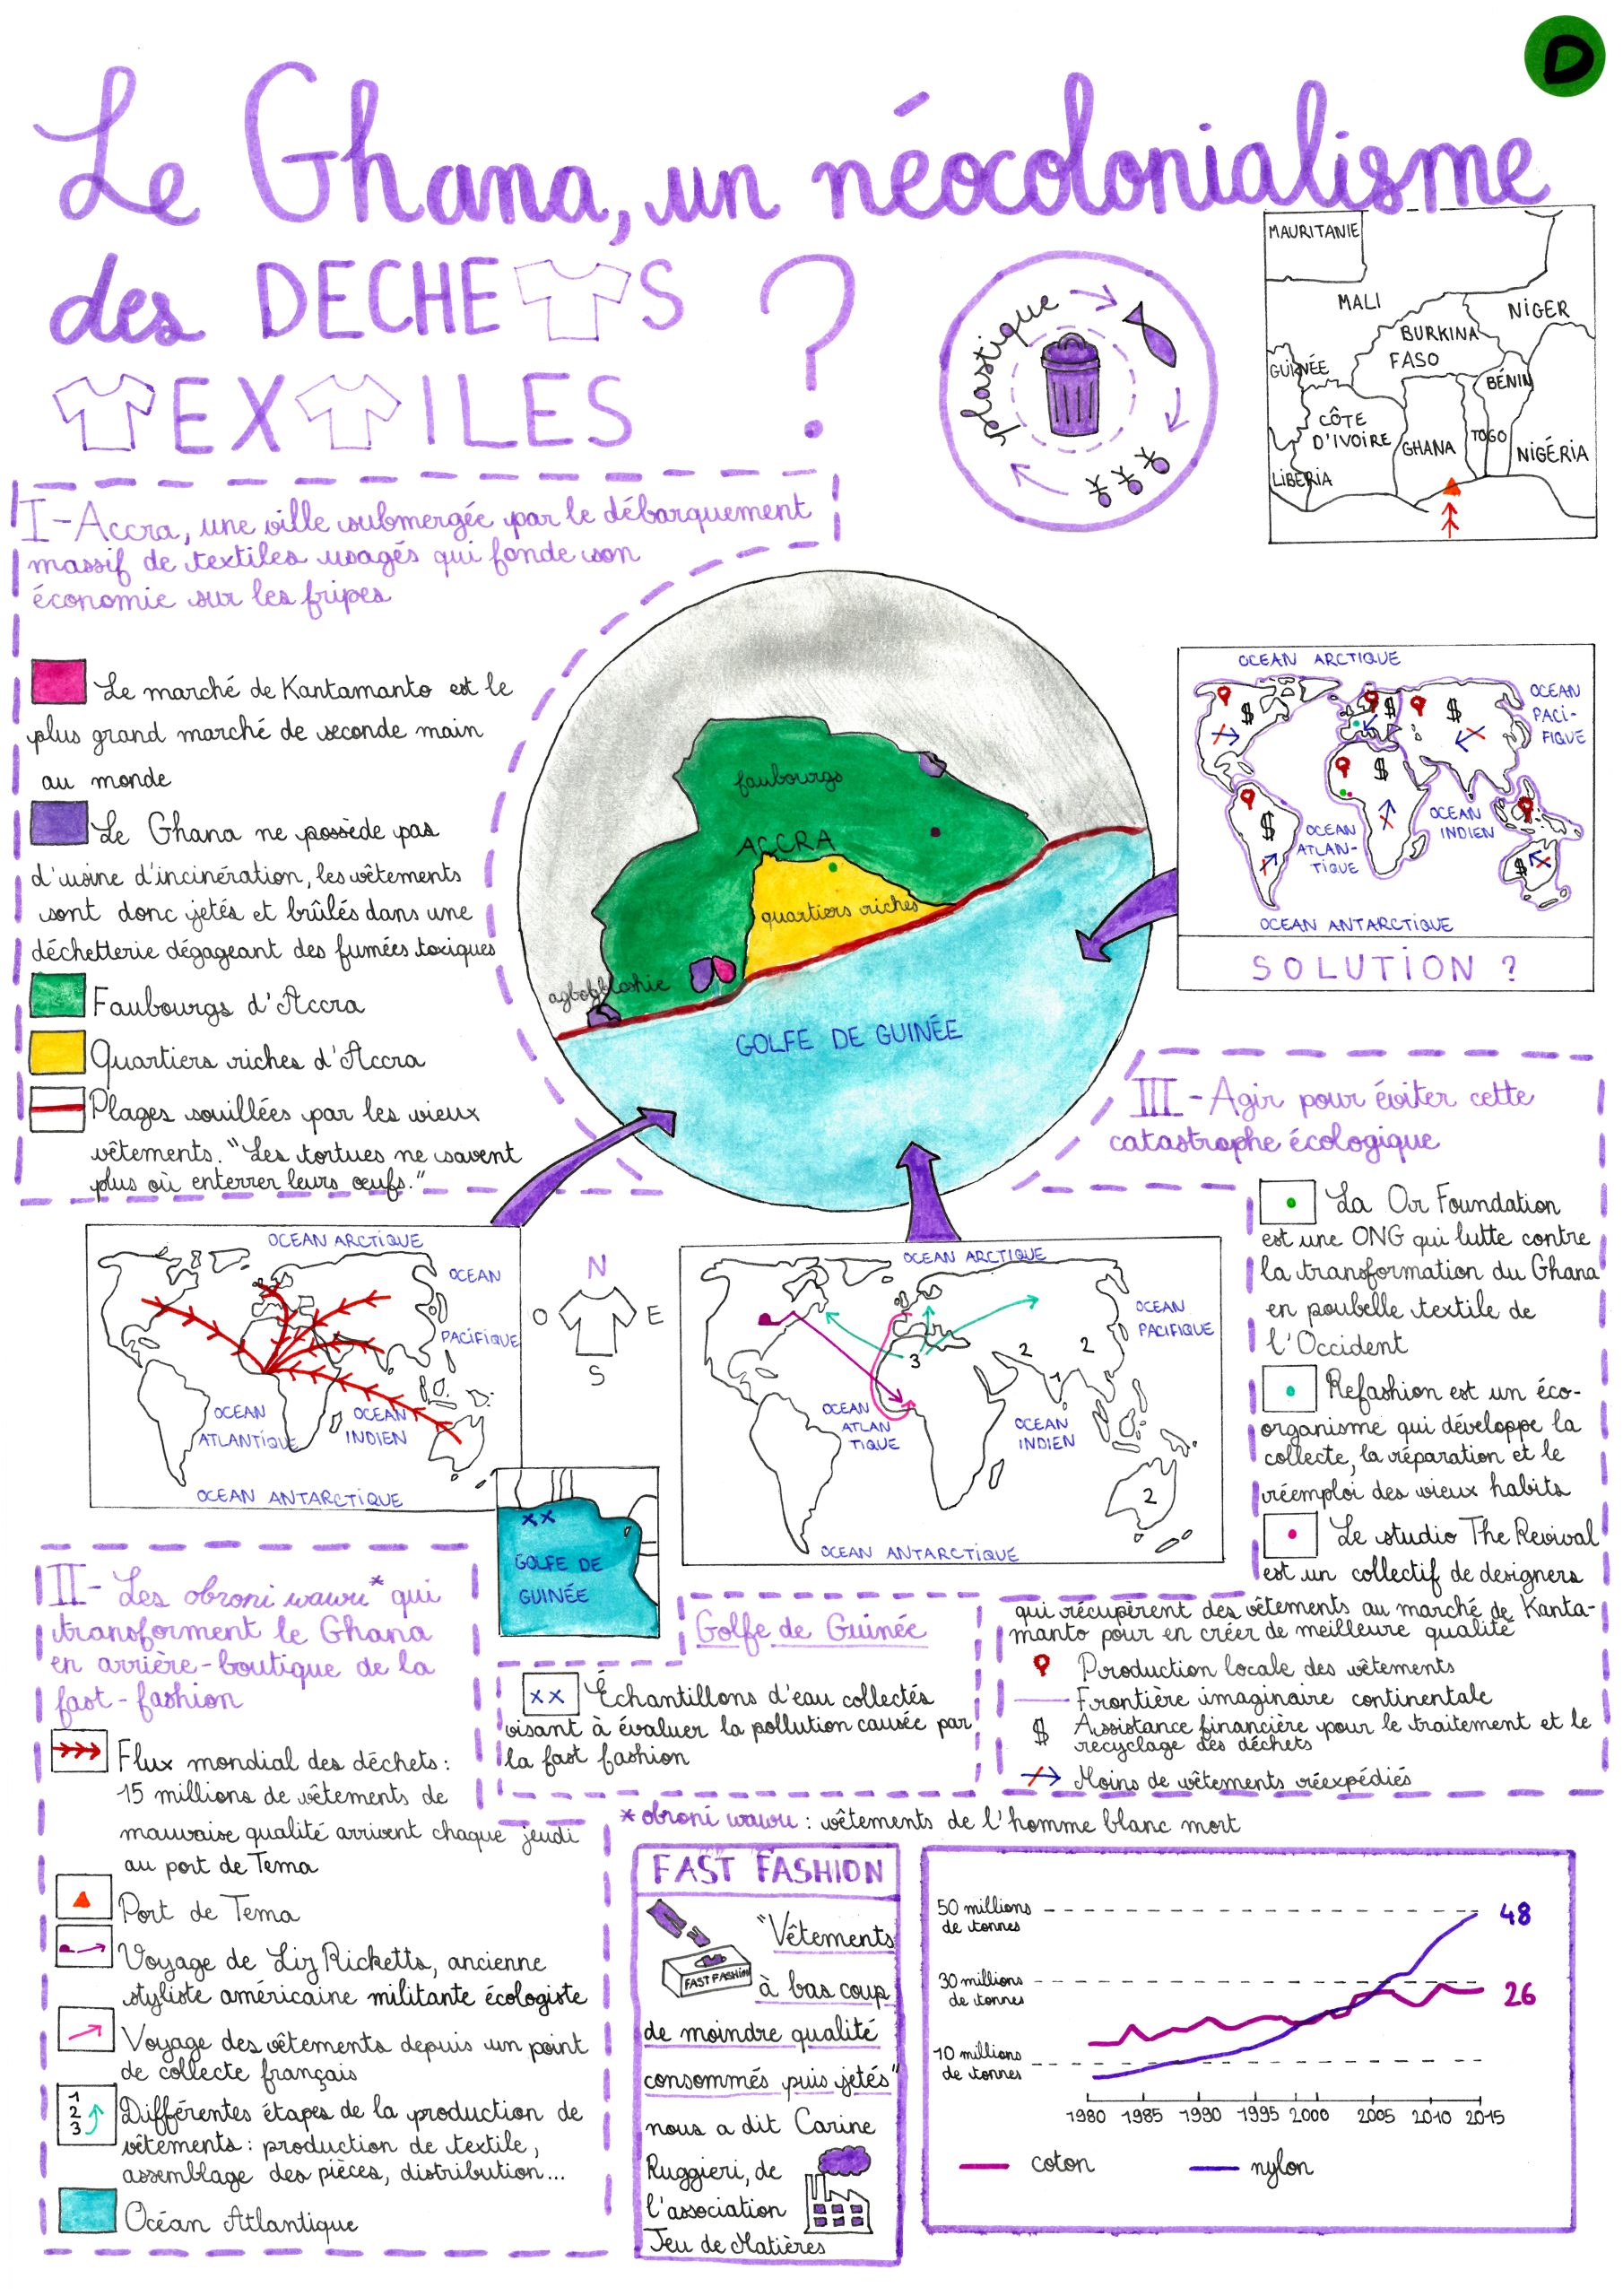 D
Le Ghana, un néocolonialisme
des DECHETS
TEXTILES ?
plastique
MAURITANIE
MALI
NIGER
BURKINA
FASO
GUINÉE
BÉNIN
CÔTE
D'IVOIRE
GHANA
TOGO
NIGÉRIA
LIBERIA
I-Accra, une ville submergée par le débarquement
massif de textiles usagés qui fonde son
économie sur les fripes
Le marché de Kantamanto est le
plus grand marché de seconde main
au monde
Le Ghana ne possède pas
d'usine d'incinération, les vêtements
sont donc jetés et brûlés dans une
déchetterie dégageant des fumées toxiques
Faubourgs d'Accra
Quartiers riches d'Accra
Plages souillées par les vieux
vêtements. "Les tortues ne savent
plus où enterrer leurs œufs."
faubourgs
ACCRA
quartiers riches
agbogbloshie
GOLFE DE GUINÉE
OCEAN ARCTIQUE
OCEAN
PACI-
FIQUE
OCEAN
INDIEN
OCEAN
ATLAN-
TIQUE
OCEAN ANTARCTIQUE
SOLUTION ?
III-Agir pour éviter cette
catastrophe écologique
La Or Foundation
est une ONG qui lutte contre
la transformation du Ghana
en poubelle textile de
l'Occident
Refashion est un éco-
organisme qui développe la
collecte, la réparation et le
réemploi des vieux habits
Le studio The Revival
est un collectif de designers
qui récupèrent des vêtements au marché de Kanta-
manto pour en créer de meilleure qualité
Production locale des vêtements
Frontière imaginaire continentale
$ Assistance financière pour le traitement et le
recyclage des déchets
Moins de vêtements réexpédiés
OCEAN ARCTIQUE
OCEAN
PACIFIQUE
OCEAN
ATLANTIQUE
OCEAN
INDIEN
OCEAN ANTARCTIQUE
N
O E
S
OCEAN ARCTIQUE
OCEAN
PACIFIQUE
3
2 2
OCEAN
ATLAN
TIQUE
OCEAN
INDIEN
2
OCEAN ANTARCTIQUE
xx
GOLFE DE
GUINÉE
II- Les obroni wawu* qui
transforment le Ghana
en arrière-boutique de la
fast-fashion
Flux mondial des déchets :
15 millions de vêtements de
mauvaise qualité arrivent chaque jeudi
au port de Tema
Port de Tema
Voyage de Liz Ricketts, ancienne
styliste américaine militante écologiste
Voyage des vêtements depuis un point
de collecte français
1
2
3
Différentes étapes de la production de
vêtements : production de textile,
assemblage des pièces, distribution...
Océan Atlantique
Golfe de Guinée
xx Échantillons d'eau collectés
visant à évaluer la pollution causée par
la fast fashion
*obroni wawu : vêtements de l'homme blanc mort
FAST FASHION
FAST FASHION
"Vêtements
à bas coup
de moindre qualité
consommés puis jetés"
nous a dit Carine
Ruggieri, de
l'association
Jeu de Matières
50 millions
de tonnes
48
30 millions
de tonnes
26
10 millions
de tonnes
1980 1985 1990 1995 2000 2005 2010 2015
coton nylon